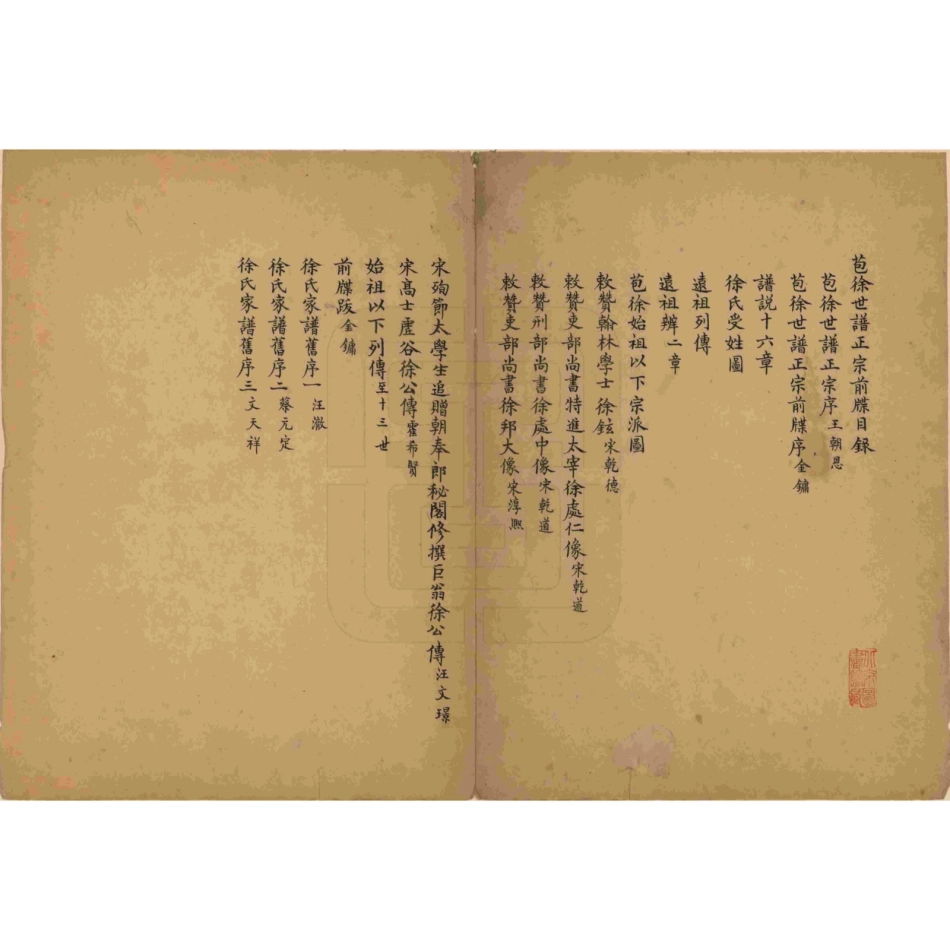 苞徐世譜正宗前牒目録
苞徐世譜正宗序王朝恩
苞徐世譜正宗前牒序金鏞
譜説十六章
徐氏受姓圖
遠祖列傳
遠祖辨二章
苞徐始祖以下宗派圖
敕贊翰林學士徐鉉宋乾德
敕贊吏部尚書特進太宰徐處仁像宋乾道
敕贊刑部尚書徐處中像宋乾道
敕贊吏部尚書徐邦大像宋淳熙
宋殉節太學生追贈朝奉郎秘閣修撰巨翁徐公傳汪文璟
宋高士虛谷徐公傳霍希賢
始祖以下列傳至十三世
前牒跋金鏞
徐氏家譜舊序一 汪澈
徐氏家譜舊序二蔡元定
徐氏家譜舊序三文天祥